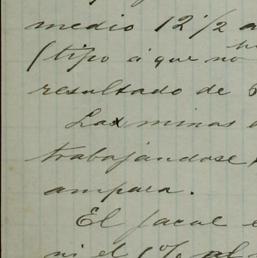 medio 12 1/2 a
(tipo á que no
resultado de
Las minas
trabajándose
ampara.
El jacal e
ni el 1% al